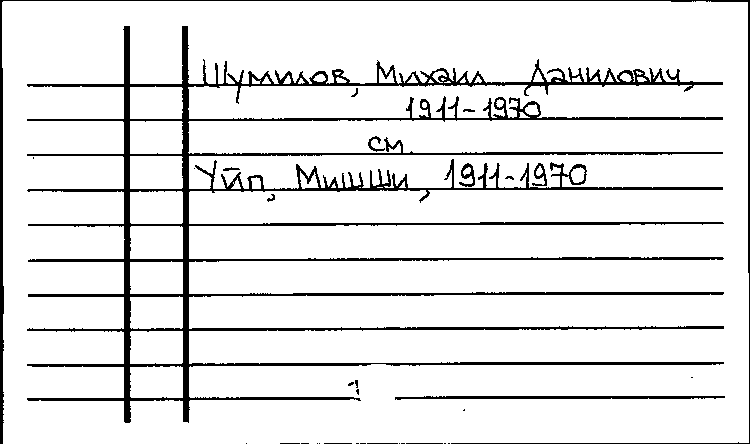 Шумилов, Михаил Данилович,
1911-1970
см.
Уйп, Мишши, 1911-1970